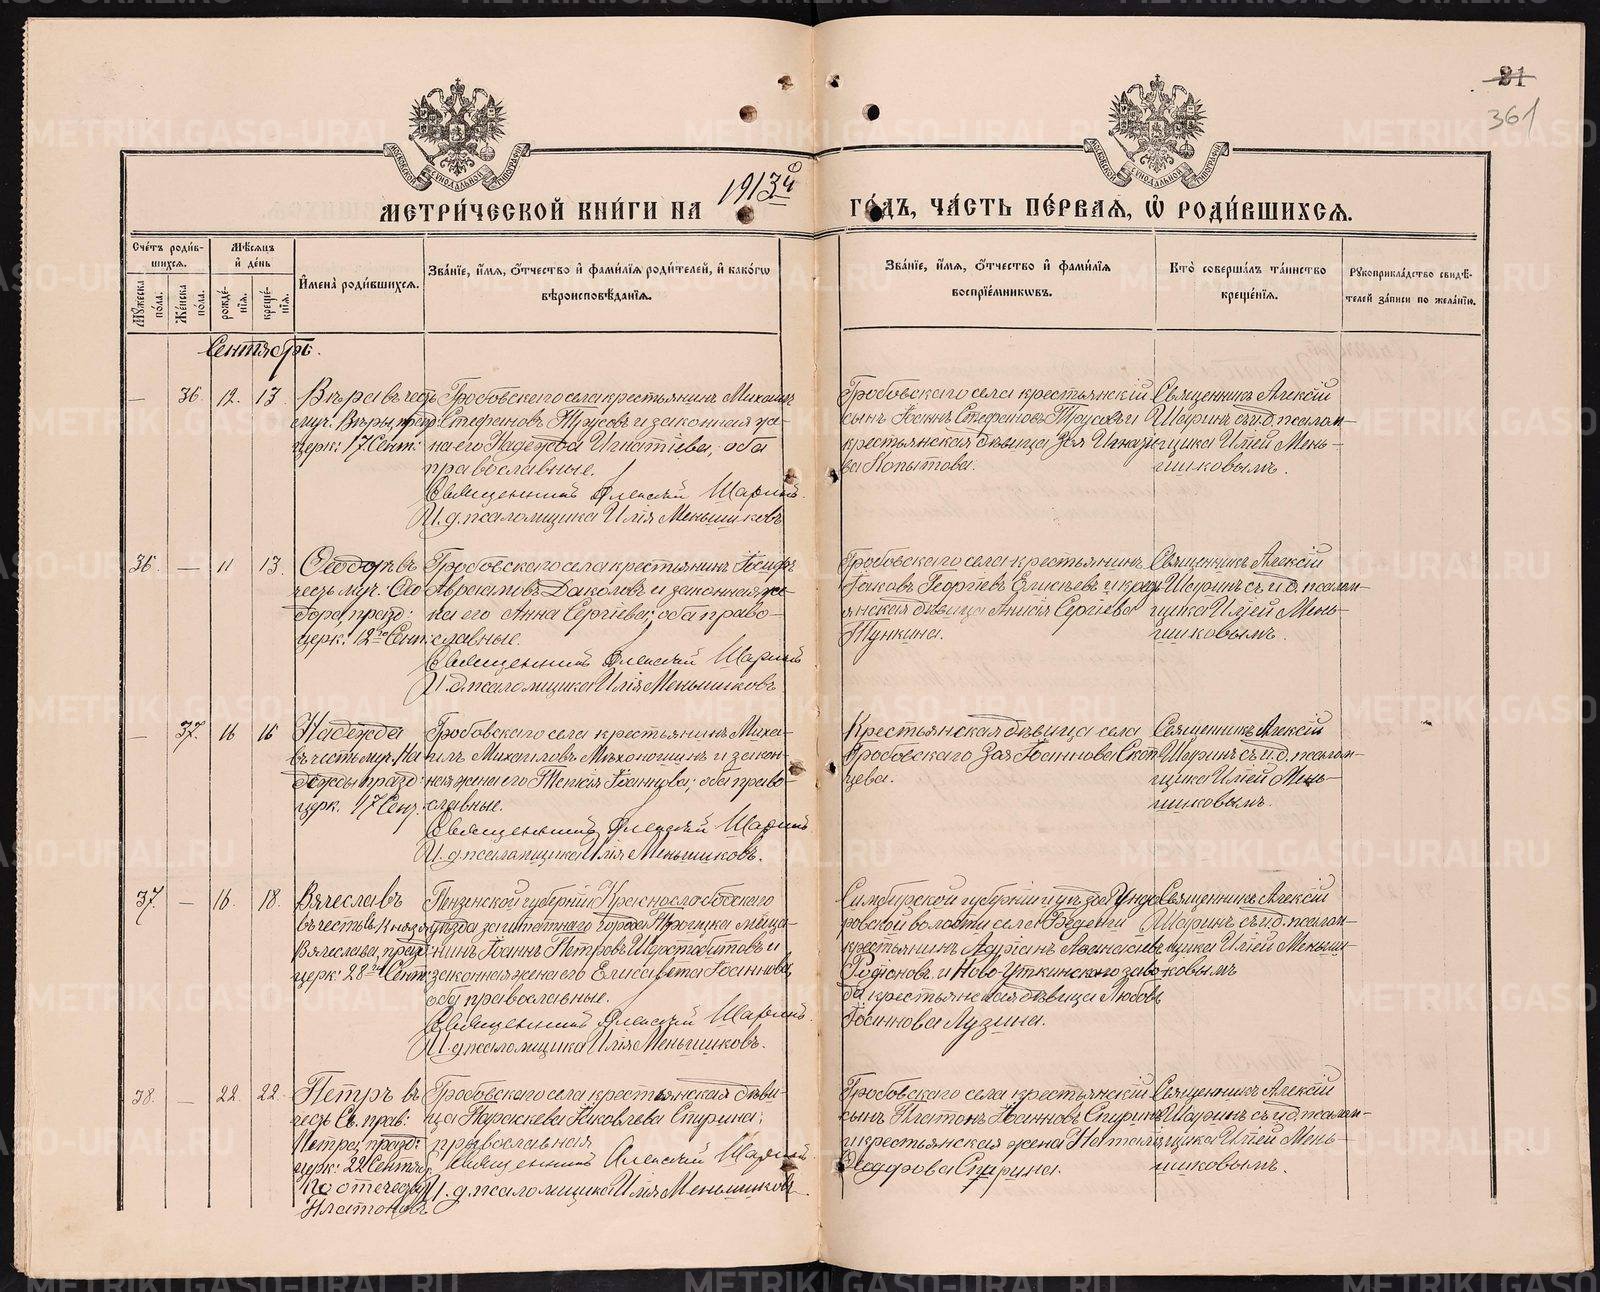 21
361
МЕТРИ́ЧЕСКОЙ КНИ́ГИ НА 1913й ГО́ДЪ, ЧА́СТЬ ПЕ́РВАЯ, Ѡ҆ РОДИ́ВШИХСЯ.
Сче́тъ роди́в-
шихся.
Мꙋ́жеска по́ла.
Же́нска по́ла.
Мѣ́сяцъ
и҆ де́нь
рожде́-
нїѧ.
креще́-
нїѧ.
И҆мена̀ роди́вшихся.
Зва́нїе, и҆́мя, ѻ҆́тчество и҆ фами́лїя роди́телей, и҆ како́гѡ
вѣроисповѣ́данїя.
Зва́нїе, и҆́мя, ѻ҆́тчество и҆ фами́лїя
воспрїе́мникѡвъ.
Кто̀ соверша́лъ та́инство
креще́нїя.
Рꙋкоприкла́дство свидѣ́-
телей за́писи по жела́нїю.
Сентябрь.
— 36. 12. 13.
Вѣра въ честь
муч. Вѣры, празд.
церк: 17 Сент:
Гробовскаго села крестьянинъ Михаилъ
Стефановъ Трусовъ и законная же-
на его Надежда Игнатіева, оба
православные.
Священникъ Алексій Шаринъ.
И. д. псаломщика Илія Меньшиковъ
Гробовскаго села крестьянскій
сынъ Іоаннъ Стефановъ Трусовъ и
крестьянская дѣвица Зоя Игнатіе
ва Копытова.
Священникъ Алексій
Шаринъ съ и. д. псалом-
щика Иліей Мень-
шиковымъ.
36. — 11 13.
Ѳеодоръ въ
честь муч. Ѳео
дора, празд:
церк: 12го Сент.
Гробовскаго села крестьянинъ Іосифъ
Авраамовъ Даколовъ и законная же-
на его Анна Сергіева; оба право-
славные.
Священникъ Алексій Шаринъ
И. д. псаломщика Илія Меньшиковъ
Гробовскаго села крестьянинъ
Іаковъ Георгіевъ Елисѣевъ и крест
янская дѣвица Анисія Сергіева
Тункина.
Священникъ Алексій
Шаринъ съ и. д. псалом-
щика Иліей Мень-
шиковымъ.
— 37. 16 16
Надежда
въ честь муч. На
дежды, празд:
церк. 17 Сент.
Гробовскаго села крестьянинъ Миха-
илъ Михаиловъ Мѣхоношинъ и закон-
ная жена его Таисія Іоаннова; оба право-
славные.
Священникъ Алексій Шаринъ
И. д. псаломщика Илія Меньшиковъ.
Крестьянская дѣвица села
Гробовскаго Зоя Іоаннова Скот
цева.
Священникъ Алексій
Шаринъ съ и. д. псалом-
щика Иліей Мень-
шиковымъ.
37. — 16. 18.
Вячеславъ
въ честь Св. Князя
Вячеслава, празд:
церк: 28го Сент.
Пензенской губерніи Краснослободскаго
уѣзда заштатнаго города Троицка мѣща-
нинъ Іоаннъ Петровъ Шустовитовъ и
законная жена его Елисавета Іоаннова,
оба православные.
Священникъ Алексій Шаринъ.
И. д. псаломщика Илія Меньшиковъ.
Симбирской губерніи и уѣзда Ундо
ровской волости села
крестьянинъ Адріанъ Аѳанасіевъ
Родіоновъ и Ново-Уткинскаго заво
да крестьянская дѣвица Любовь
Іоаннова Лузина.
Священникъ Алексій
Шаринъ съ и. д. псалом-
щика Иліей Меньши-
ковымъ
38. — 22. 22.
Петръ въ
честь Св. прав:
Петра, празд:
церк: 22 Сентяб.
По отечеству
Платоновъ
Гробовскаго села крестьянская дѣви-
ца Параскева Іаковлева Спирина;
православная
Священникъ Алексій Шаринъ
И. д. псаломщика Илія Меньшиковъ.
Гробовскаго села крестьянскій
сынъ Платонъ Іоанновъ Спиринъ
и крестьянская жена Наталія
Ѳеодорова Спирина.
Священникъ Алексій
Шаринъ съ и. д. псалом-
щика Иліей Мень-
шиковымъ.